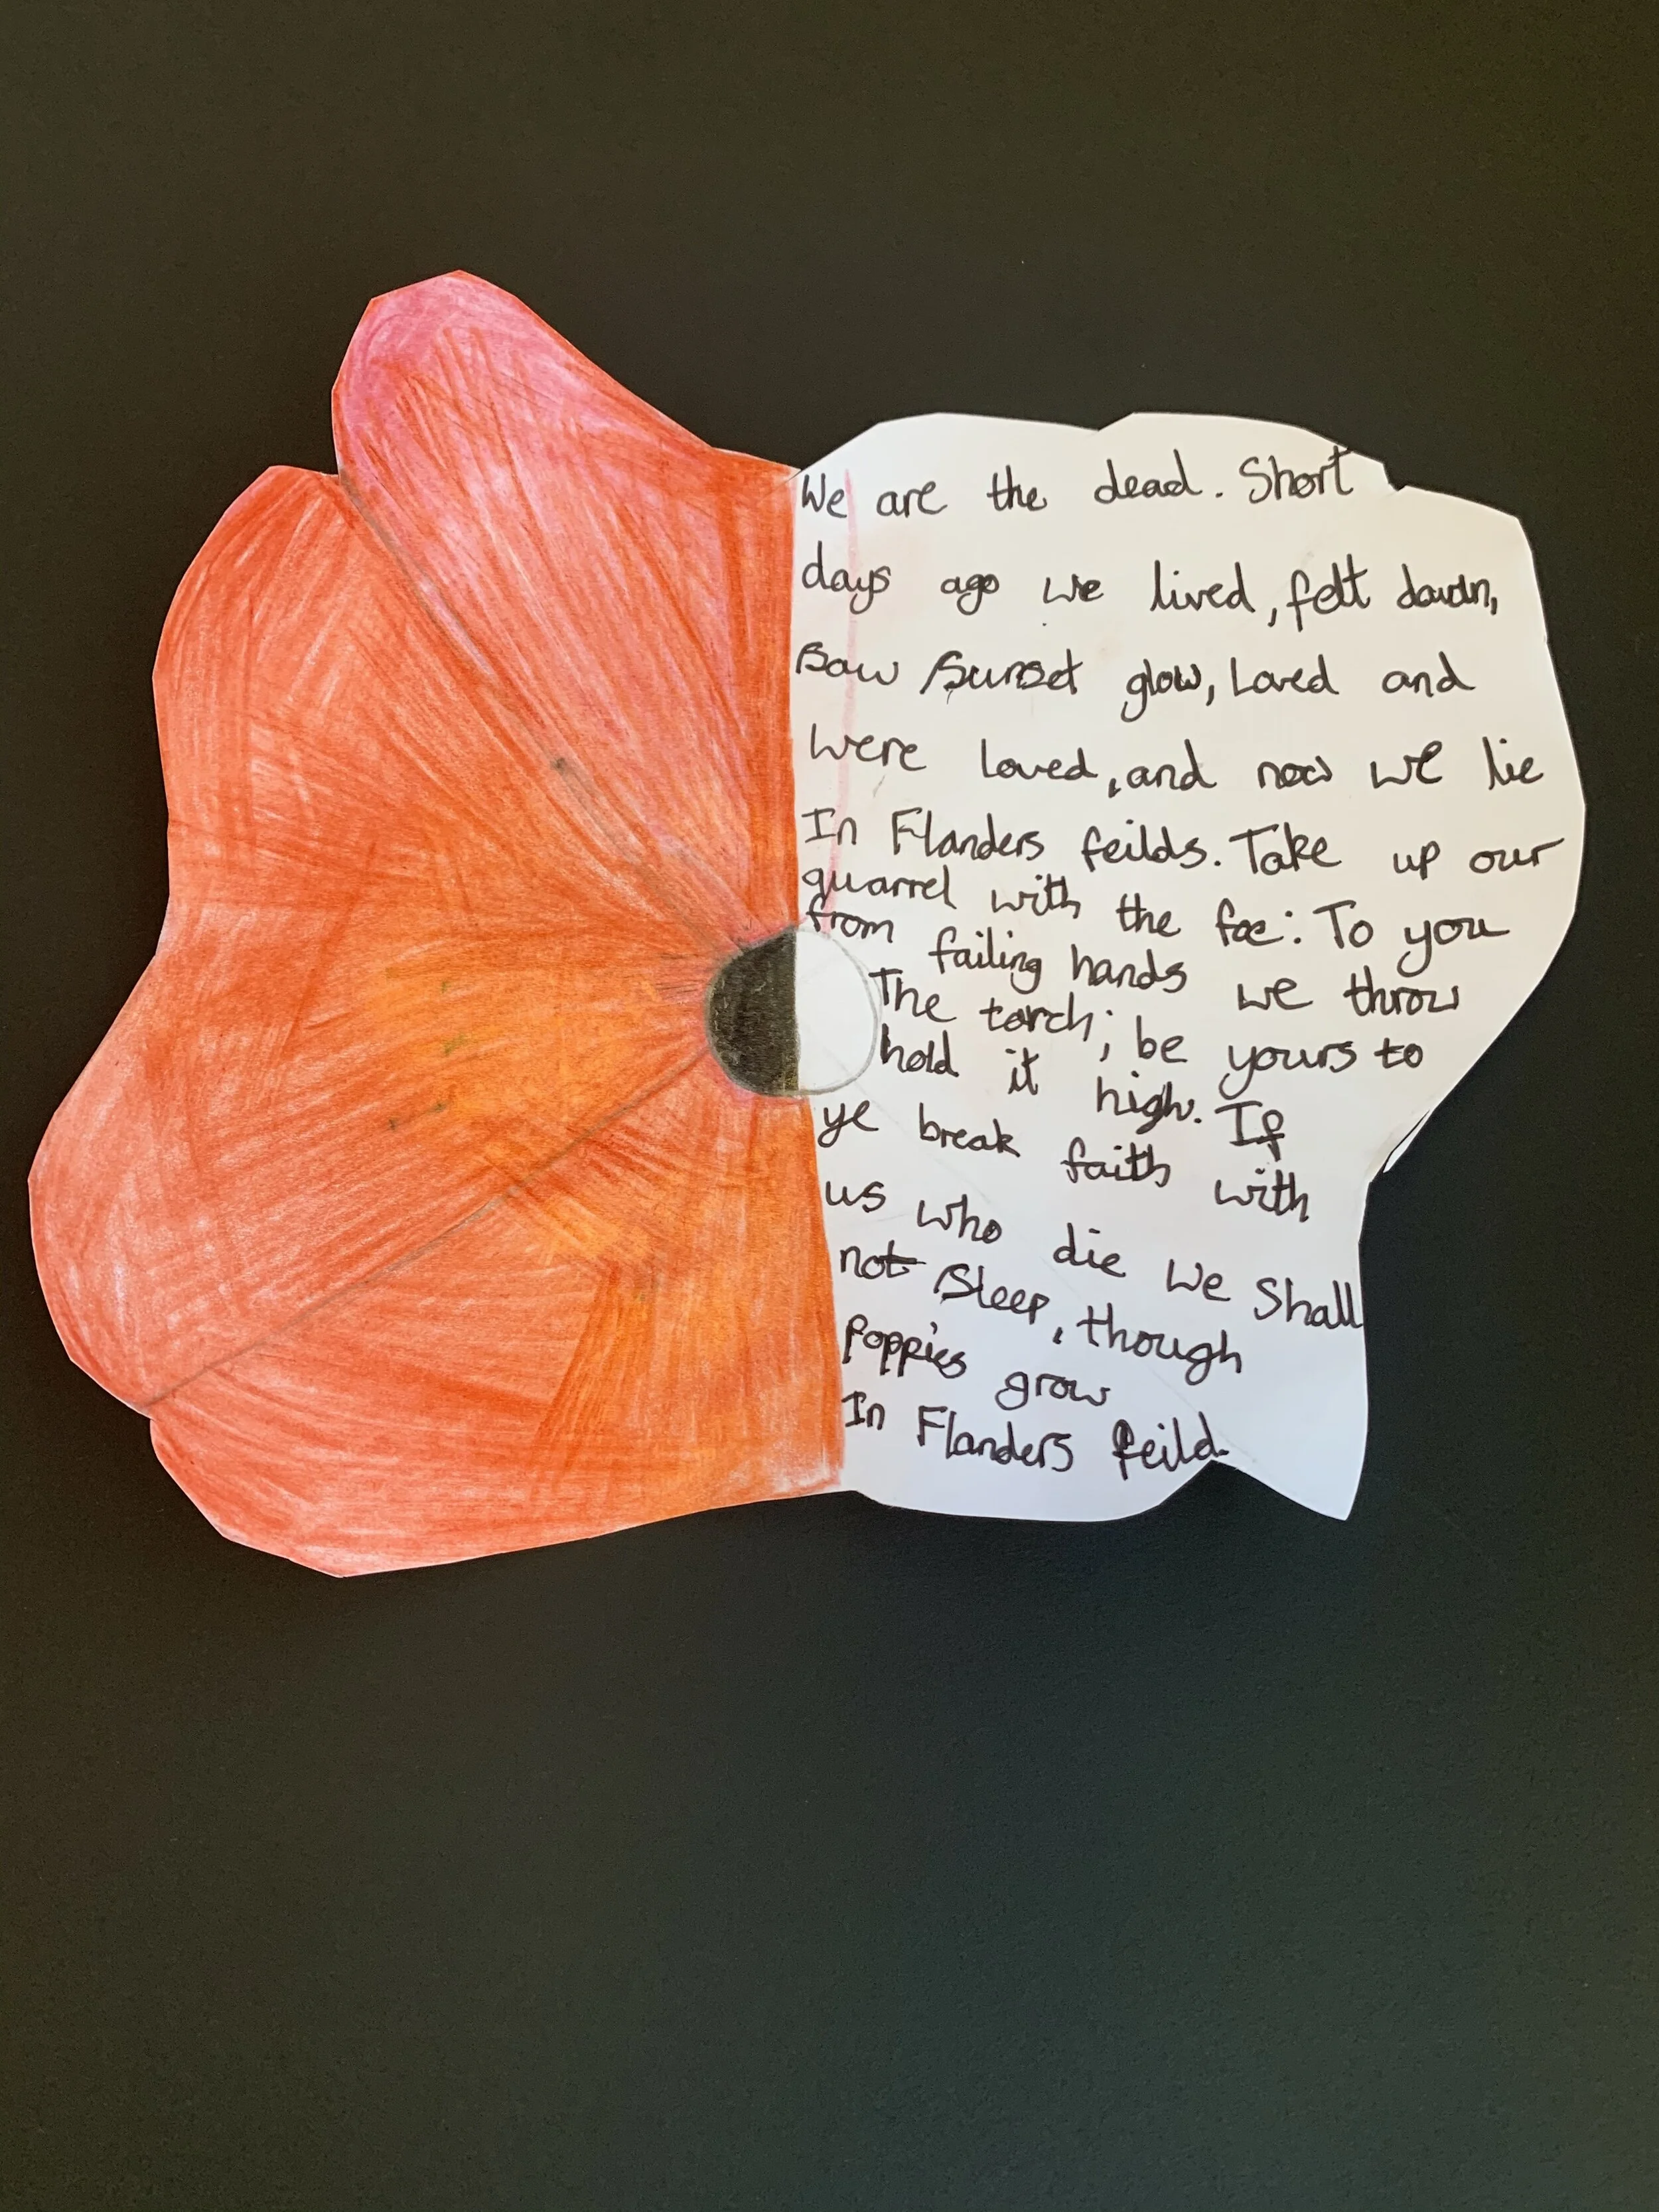 We are the dead. Short
days ago we lived, felt dawn,
Saw Sunset glow, Loved and
were loved, and now we lie
In Flanders feilds. Take up our
quarrel with the foe: To you
from failing hands we throw
The torch; be yours to
hold it high. If
ye break faith with
us who die We Shall
not Sleep, though
Poppies grow
In Flanders feild.